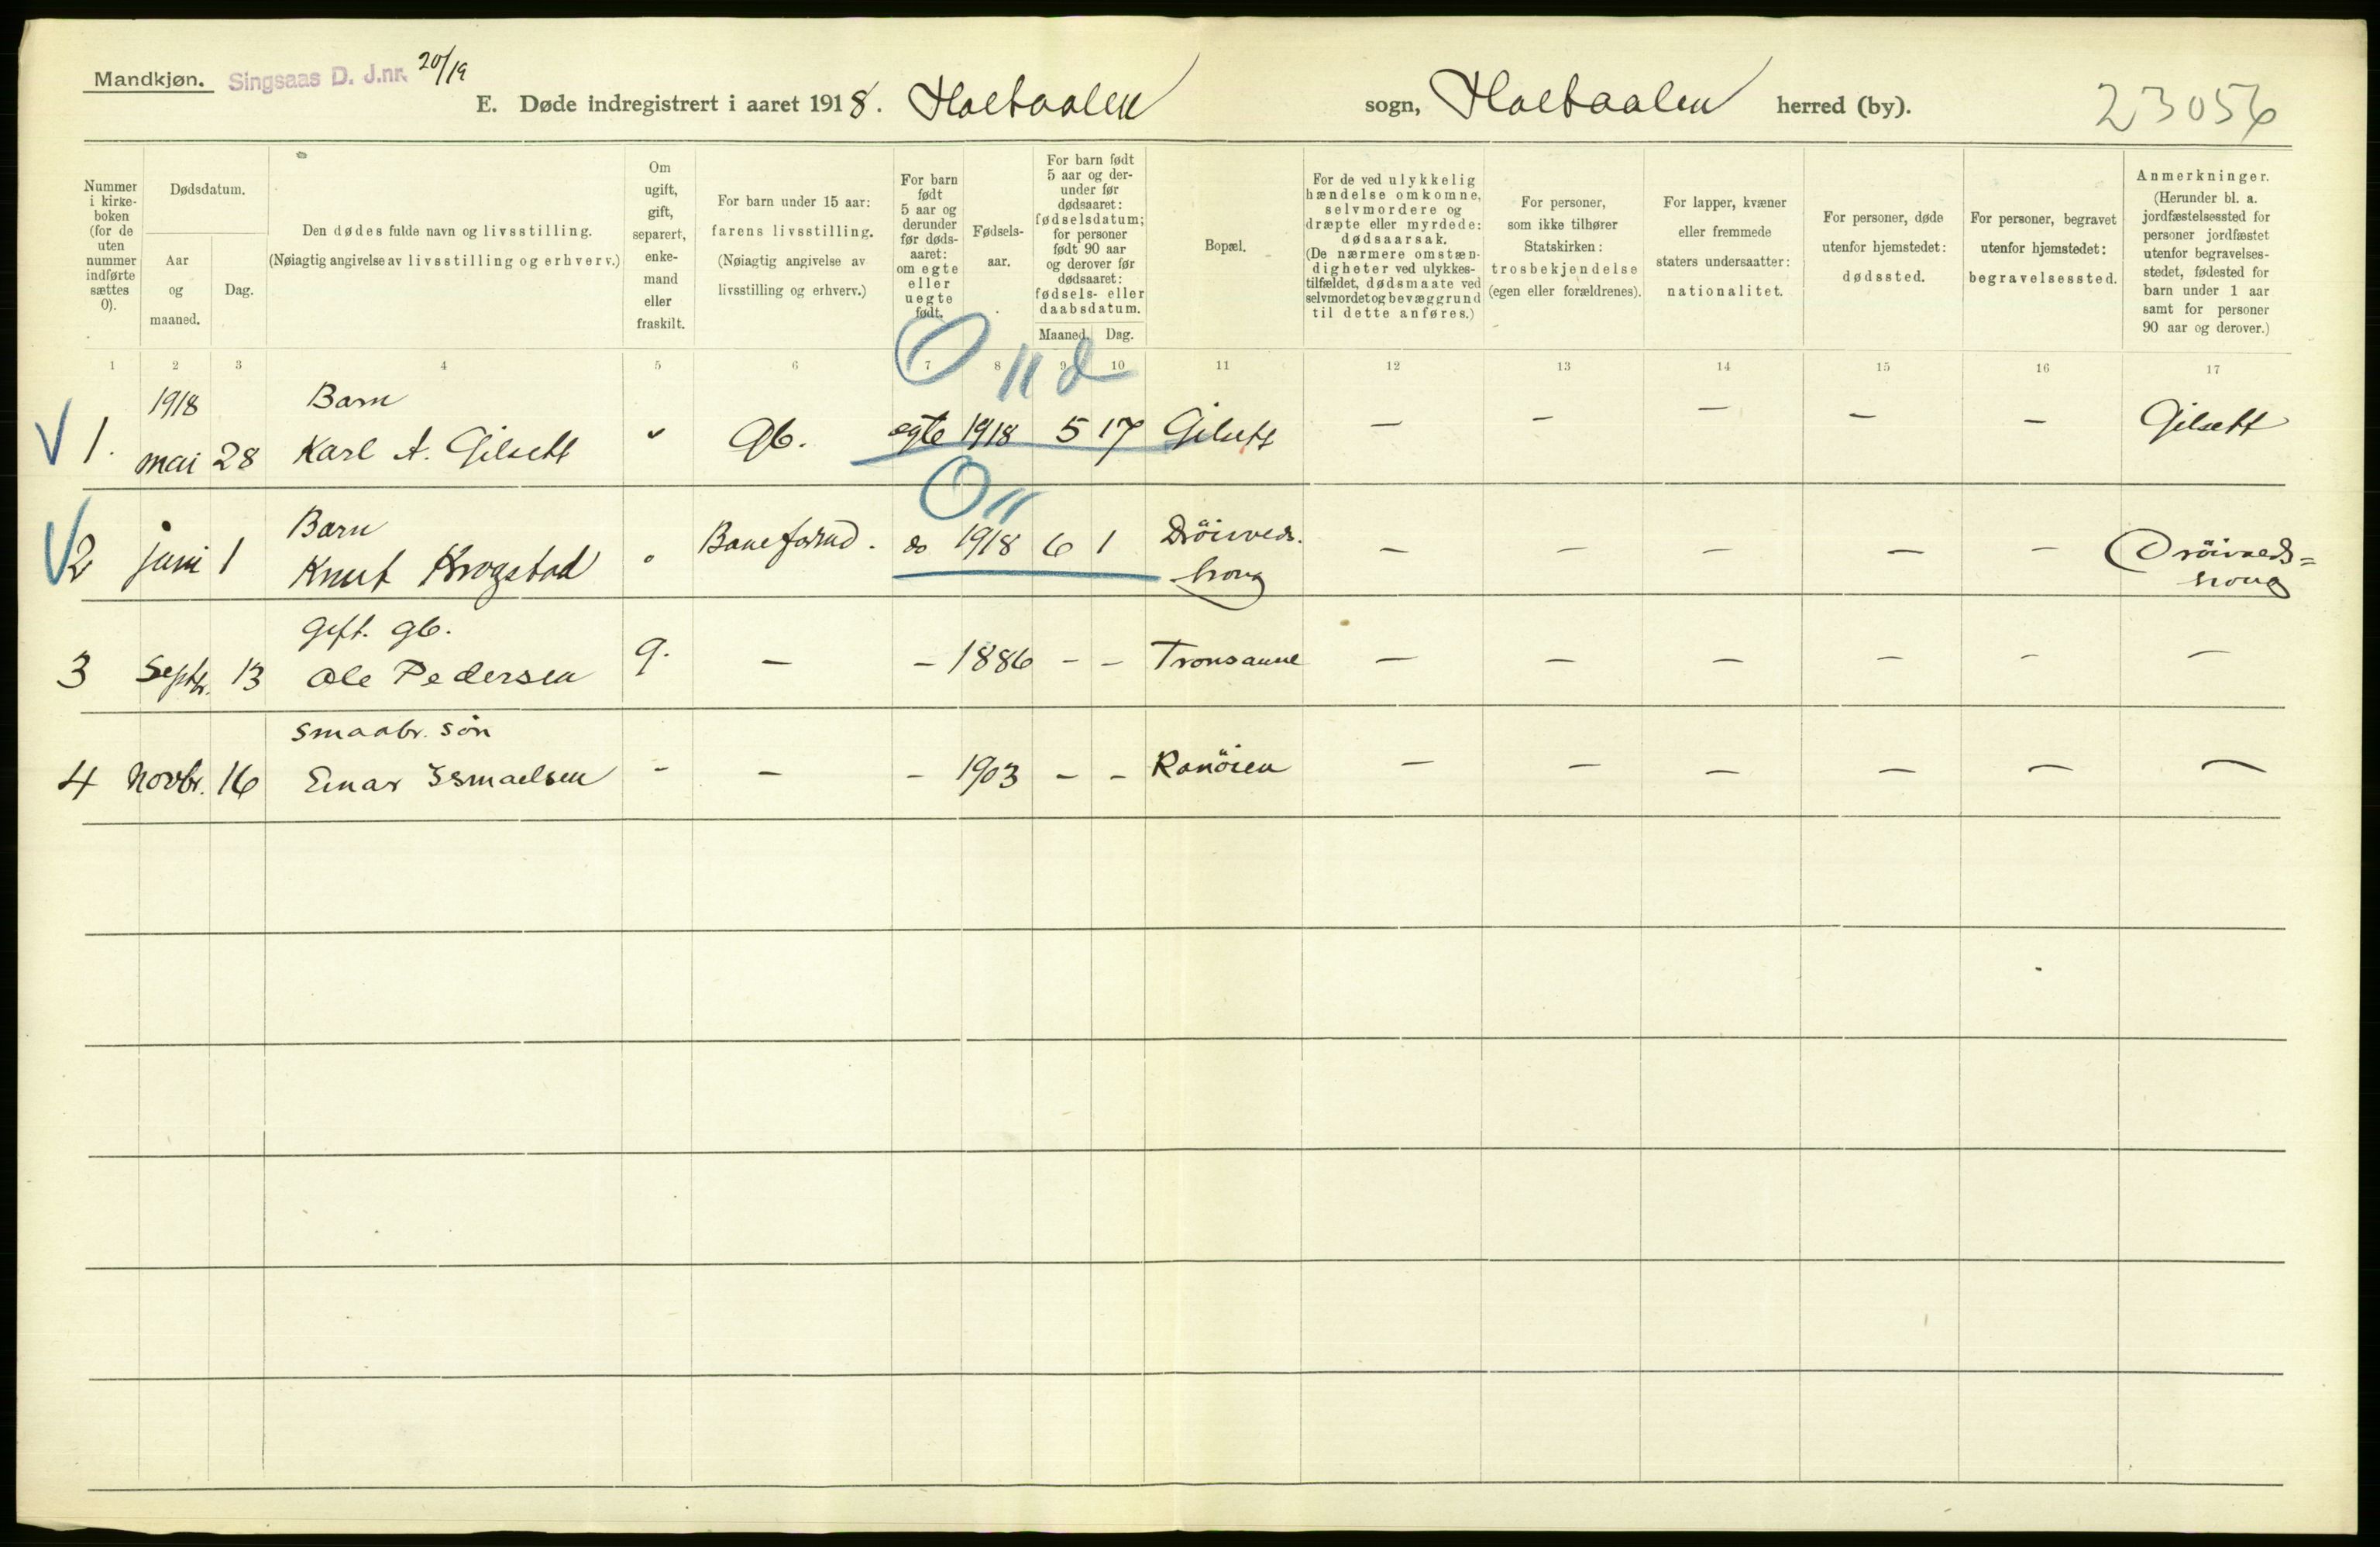 Mandkjøn. Singsaas D. J.nr. 20/19
E. Døde indregistrert i aaret 1918. Holtaalen sogn, Holtaalen herred (by). 23056
Nummer i kirke-boken (for de uten nummer indførte sættes 0).
Dødsdatum.
Aar og maaned.
Dag.
Den dødes fulde navn og livsstilling.
(Nøiagtig angivelse av livsstilling og erhverv.)
Om ugift, gift, separert, enke-mand eller fraskilt.
For barn under 15 aar:
farens livsstilling.
(Nøiagtig angivelse av
livsstilling og erhverv.)
For barn født 5 aar og derunder før døds-aaret: om egte eller uegte født.
Fødsels-aar.
For barn født 5 aar og der-under før dødsaaret: fødselsdatum; for personer født 90 aar og derover før dødsaaret: fødsels- eller daabsdatum.
Maaned. Dag.
Bopæl.
For de ved ulykkelig
hændelse omkomne,
selvmordere og
dræpte eller myrdede:
dødsaarsak.
(De nærmere omstæn-
digheter ved ulykkes-
tilfældet, dødsmaate ved
selvmordet og bevæggrund
til dette anføres.)
For personer,
som ikke tilhører
Statskirken:
trosbekjendelse
(egen eller forældrenes).
For lapper, kvæner
eller fremmede
staters undersaatter:
nationalitet.
For personer, døde
utenfor hjemstedet:
dødssted.
For personer, begravet
utenfor hjemstedet:
begravelsessted.
Anmerkninger.
(Herunder bl. a.
jordfæstelsessted for
personer jordfæstet
utenfor begravelses-
stedet, fødested for
barn under 1 aar
samt for personer
90 aar og derover.)
1 2 3 4 5 6 7 8 9 10 11 12 13 14 15 16 17
1918 Barn
1. mai 28 Karl A. Gilsett " Gb. egte 1918 5 17 Gilsett — — — — — Gilsett
Barn
2 juni 1 Knut Krogstad " Baneformd. do 1918 6 1 Dröiveds- — — — — — Dröiveds=
houg houg
Gift. gb.
3 Septbr. 13 Ole Pedersen g. — — 1886 — — Tronsaune — — — — — —
Smaabr. sön
4 Novbr. 16 Einar Ismaelsen — — — 1903 — — Ranöien — — — — — —